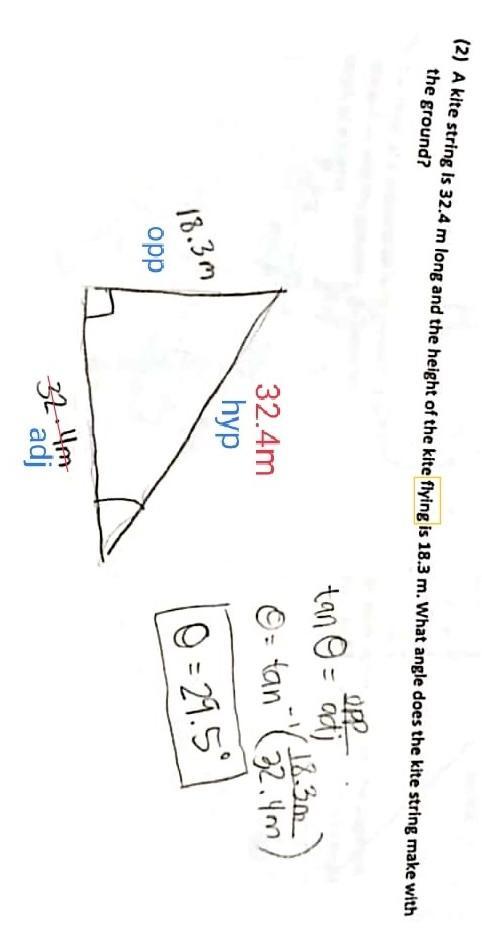 (2) A kite string is 32.4 m long and the height of the kite flying is 18.3 m. What angle does the kite string make with
the ground?
18.3m
opp
32.4m
hyp
32.4m
adj
tan θ = opp/adj
θ = tan⁻¹(18.3m/32.4m)
θ = 29.5°